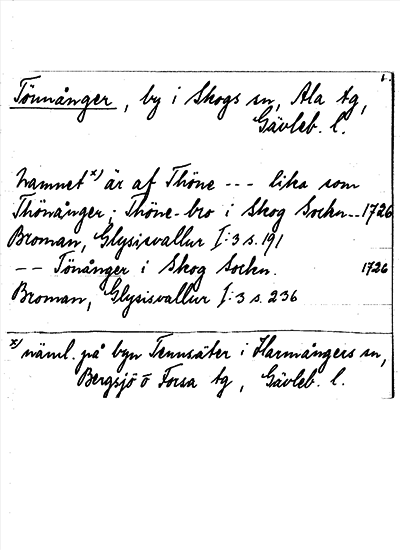 1.
Tönnånger, by i Skogs sn, Ala tg,
Gävleb. l.
Namnet x) är af Thöne --- lika som
Thönånger; Thöne-bro i Skog Sockn-- 1726
Broman, Glysisvallur I:3 s. 191
-- Tönånger i Skog Sockn. 1726
Broman, Glysisvallur I:3 s. 236
x) näml. på byn Tennsäter i Harmångers sn,
Bergsjö o Forsa tg, Gävleb. l.